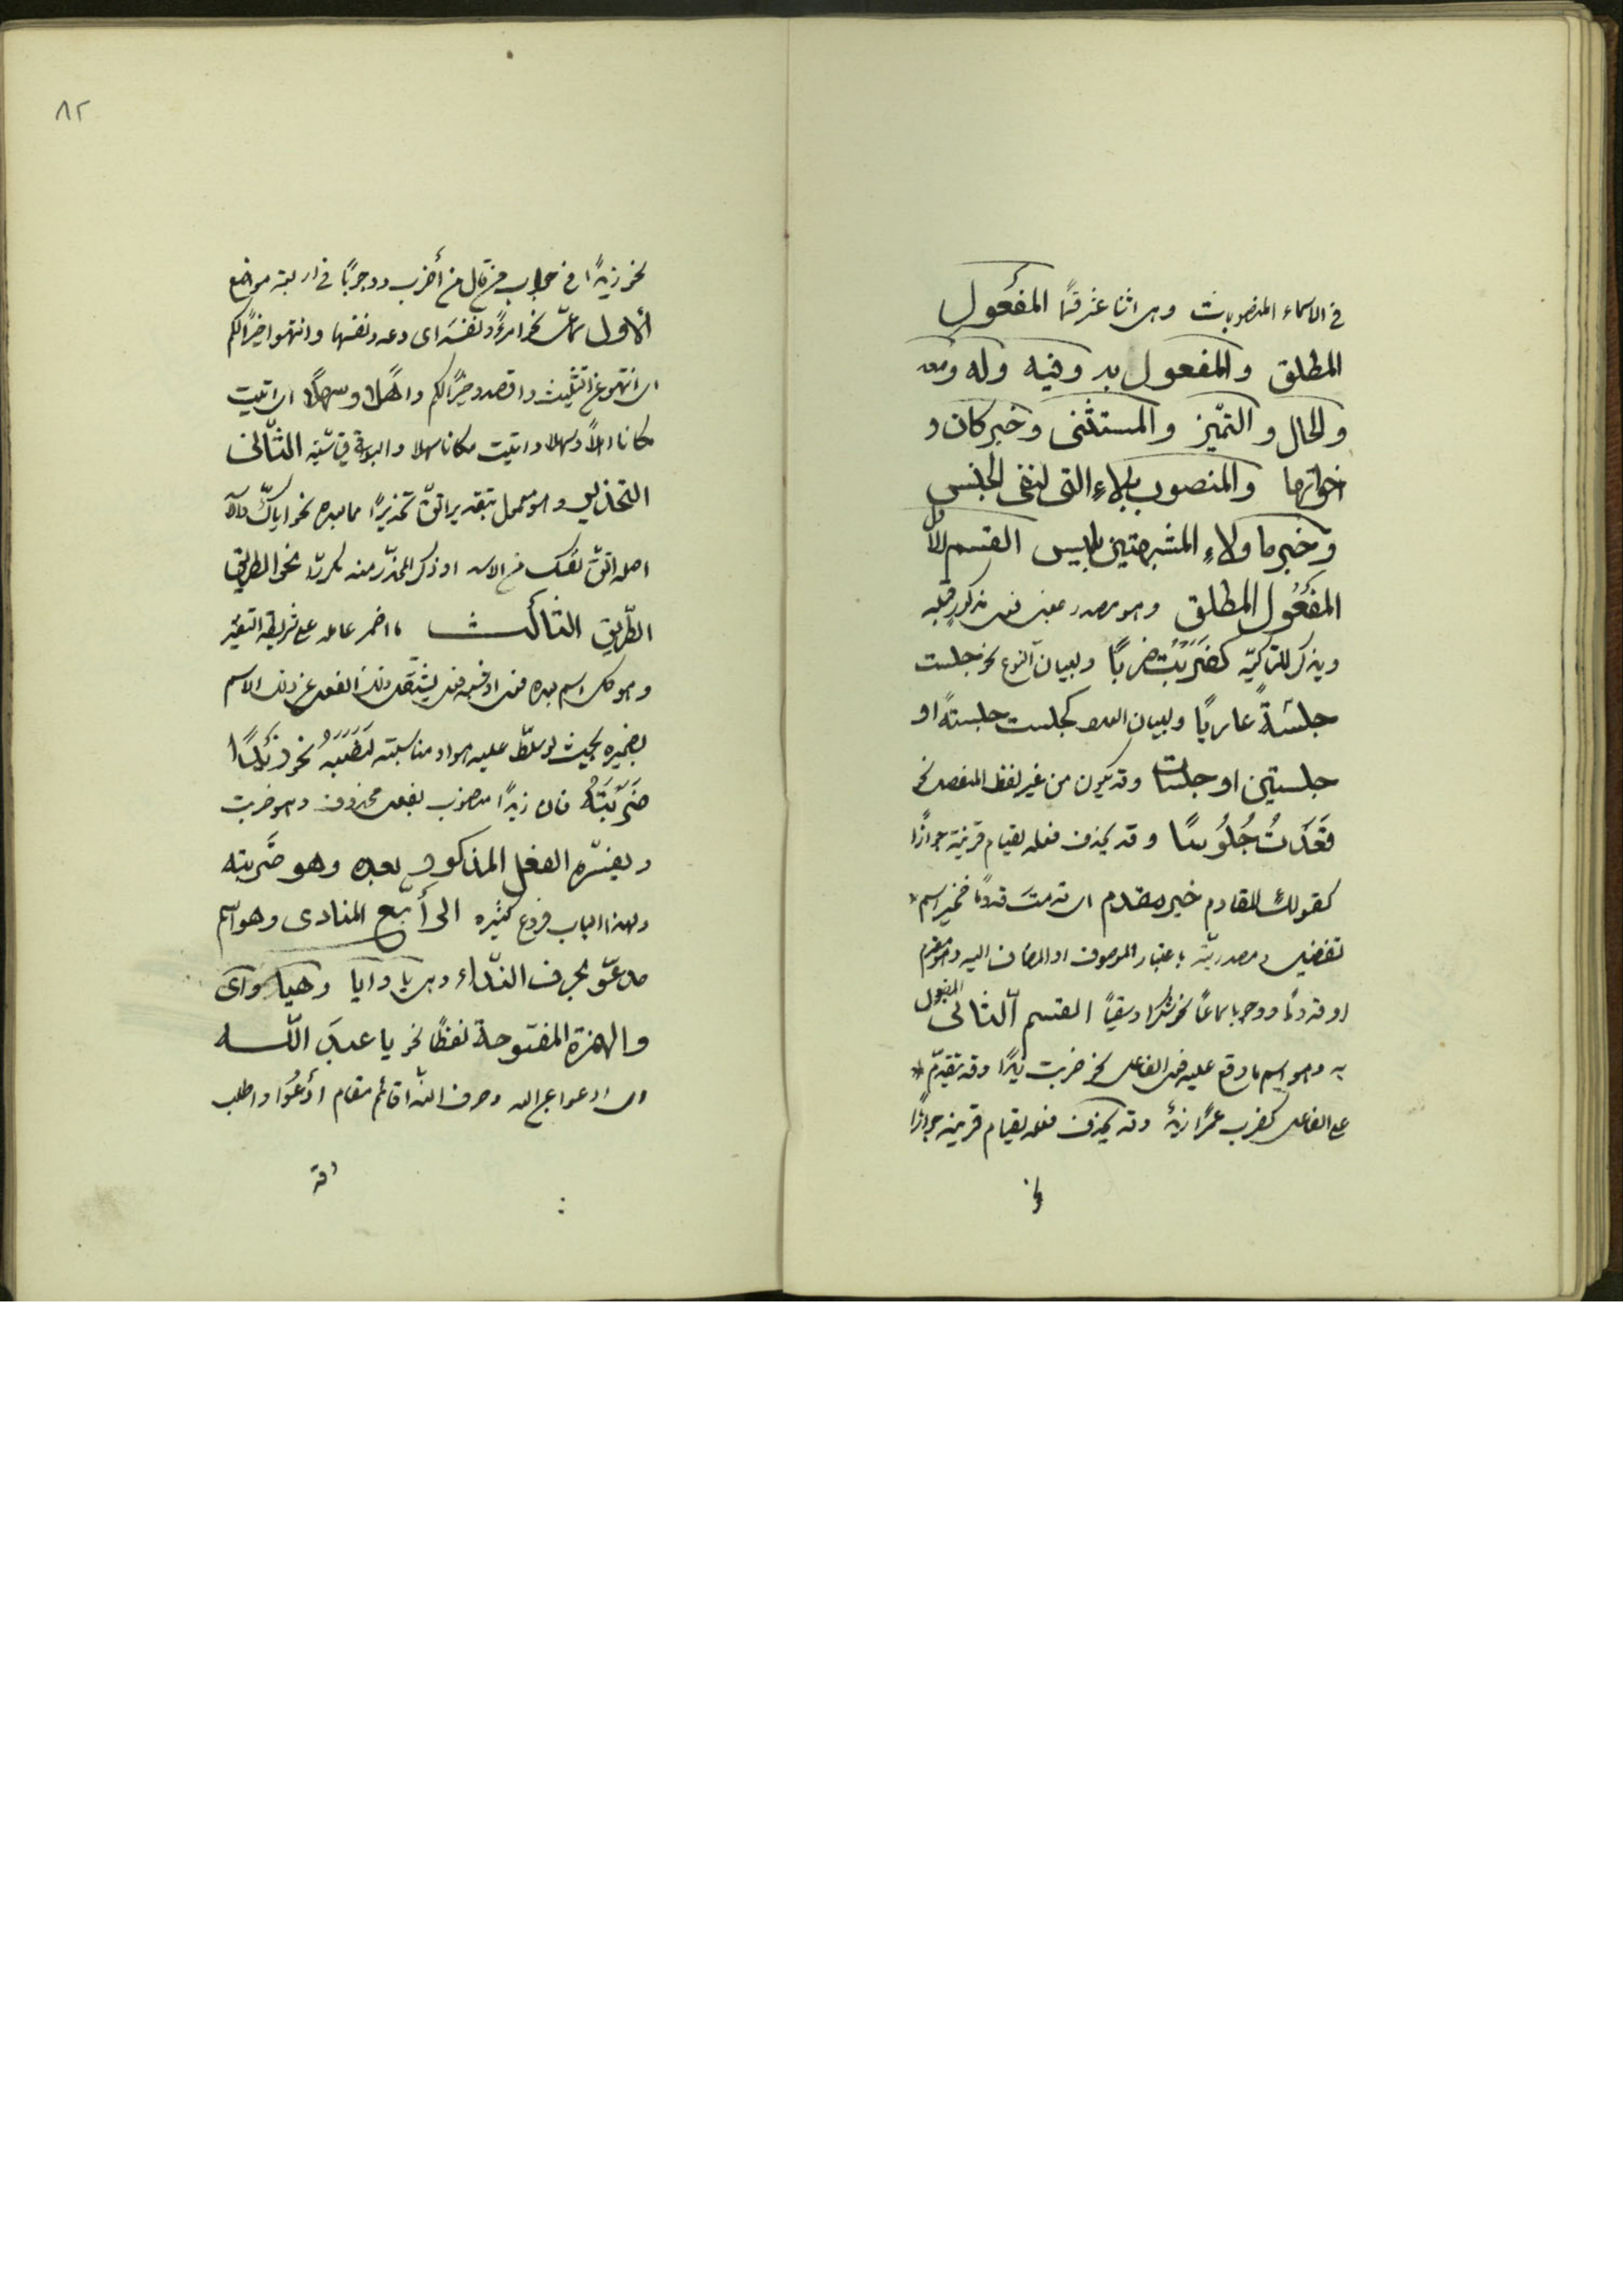 في الاسماء المنصوبات وهى اثنا عشر قسمًا المفعول
المطلق والمفعول به وفيه وله ومعه
والحال والتمّيز والمستثنى وخبر كان و
اخواتها والمنصوب بلاء التى لنفى الجنس
وخبر ما ولاء المشبهتين بليس القسم الأوّل
المفعُول المطلق وهو مصدر بمعنى فعل مذكور قبله
ويذكر للتاكيد كضَرَبْتُ ضربًا ولبيان النوع نحو جلست
جلسَةً عاريًا ولبيان العدد كجلست جلستةً او
جلستين او جلسات وقد يكون من غير لفظ الفعل نحو
قَعَدَتُ جُلُوسًا وقد يحذف فعله لقيام قرينة جوازًا
كقولك للقادم خير مقدم اى قدمتَ قدومًا فخير اسم
تفضيل ومصدريّته باعتبار الموصوف او المضاف اليه وهو مقدم
او قدومًا ووجوبا سماعًا نحو شكرا وسقيًا القسم الثانى المفعول
به وهو اسم ما وقع عليه فعل الفاعل نحو ضربت زيدًا وقد تقدّم
على الفاعل كضرب عمرًا زيدٌ وقد يحذف فعله لقيام قرينة جوازًا
نحو
٨٢
نحو زيدًا في جواب من قال من أضرب ووجوبًا في اربعة مواضع
الأول سماعىّ نحو امرءً ونفسَه اى دعه ونفسها وانتهوا خيرًا لكم
اى انتهوا عن التثليث واقصدوا خيرًا لكم واهلًا وسهلًا اى اتيت
مكانا اهلًا وسهلا واتيت مكانا سهلا والبواقى قياسيّة الثّانى
التحذير وهو معمول بتقدير اتقّ تحذيرًا مما بعده نحو اياك والاسد
اصله اتقّ نفسك من الاسد او ذكر المحذّر منه مكررًا نحو الطريق
الطّريق الثالث ما اضمر عامله على شريطة التفسير
وهو كل اسم بعده فعل او شبهه يشتغل ذلك الفعل عن ذلك الاسم
بضميره بحيث لو سلّط عليه هو او مناسبته لَنَصَبَهُ نحو زيدًا
ضَرَبْتَهُ فان زيدًا منصوب بفعل محذوف وهو ضربت
ويفسّره الفعل المذكور بعده وهو ضَربته
ولهذا الباب فروع كثيره الرابع المنادى وهو اسم
مدعوّ بحرف النّداء وهى يا وايا وهيا واى
والهمزة المفتوحة لفظًا نحو يا عبدَ اللّه
اى ادعوا عبد الله وحرف النّداء قائم مقام أدعُوا واطلب
وقد